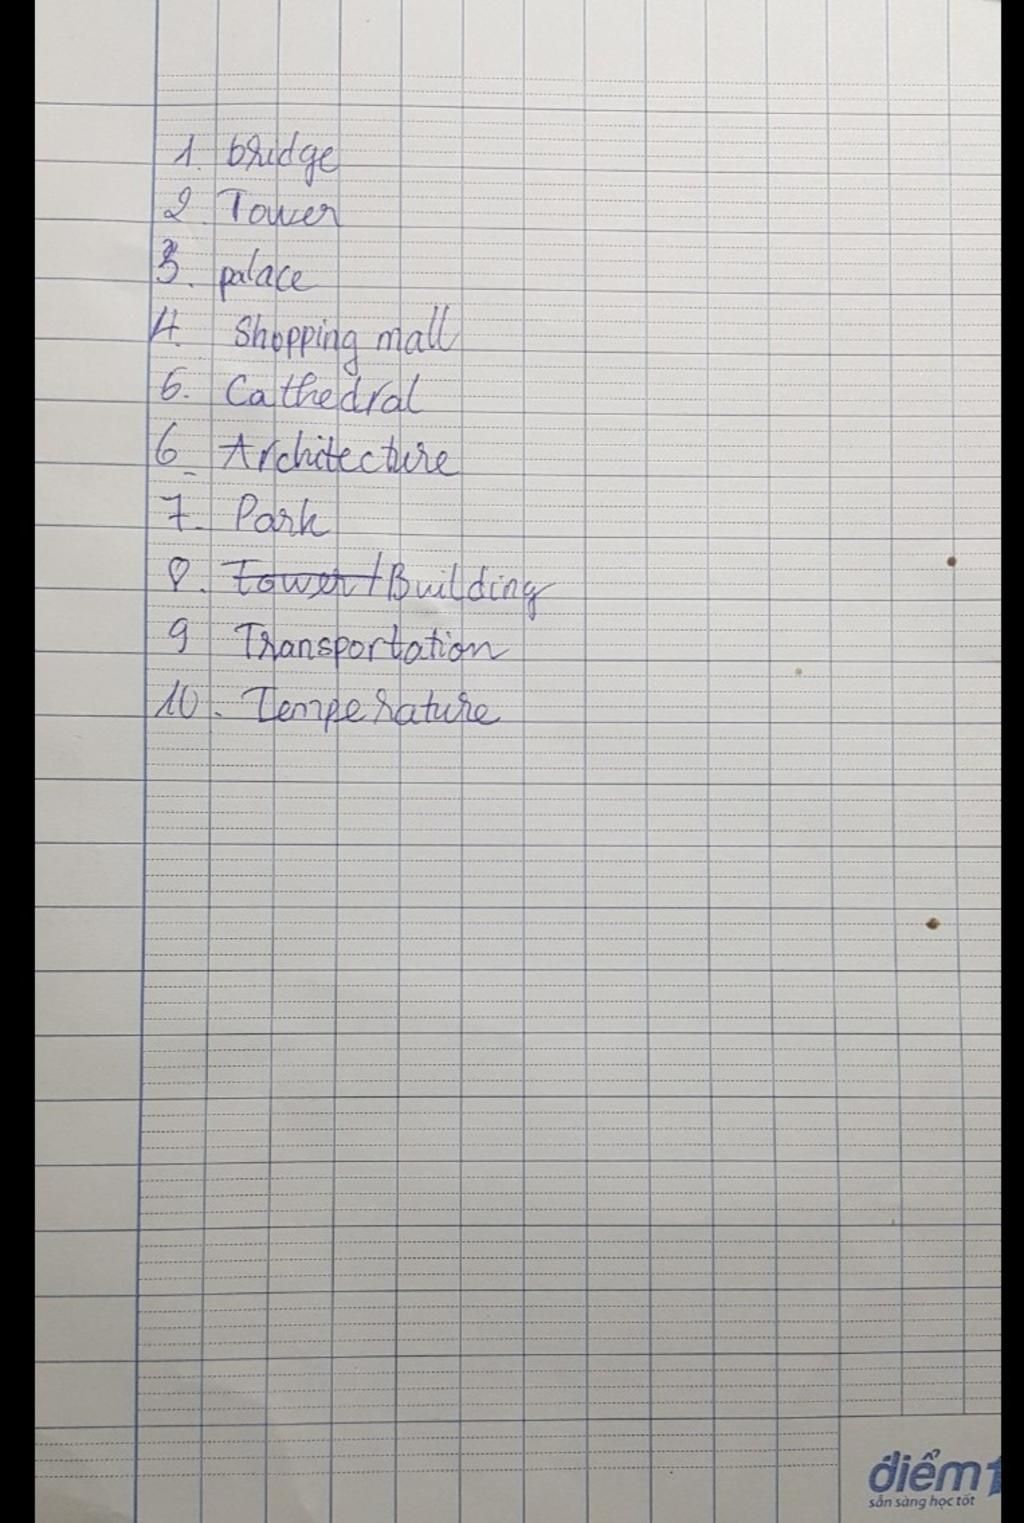 1. bridge
2. Tower
3. palace
4. Shopping mall
5. Cathedral
6. Architecture
7. Park
8. Tower Building
9 Transportation
10. Temperature
điểm
sẵn sàng học tốt